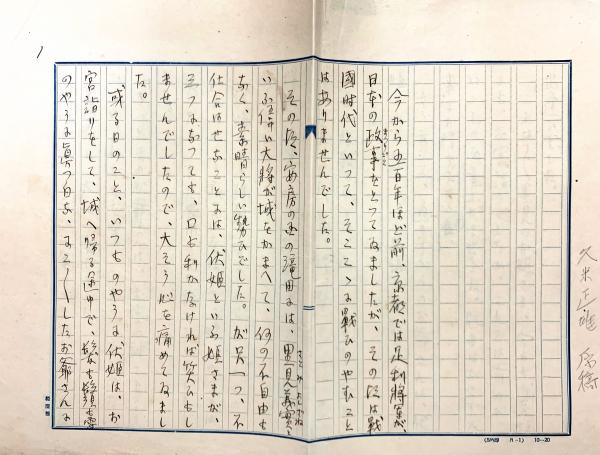 今から五百年ほど前、京都では足利將軍が、
日本の政事をとつてゐましたが、その頃は戰
まつりごと
國時代といつて、そこここに戰ひのやむこと
はありませんでした。
その頃、安房の国の滝田には、里見義實と
さとみよしざね
いふ強い大將が城をかまへて、何の不自由も
なく、素晴らしい勢ひでした。が只一つ、不
仕合はせなことには、伏姫といふ姫さまが、
三つになつても、口も利かなければ笑ひもし
ませんでしたので、大そう心を痛めてゐまし
た。
或る日のこと、いつものやうに伏姫は、お
宮詣りをして、城へ帰る途中で、髪も鬚も雪
のやうに眞つ白な、にこ〳〵したお爺さんに
久米正雄 原稿
1
(SM印 A-1) 10-20